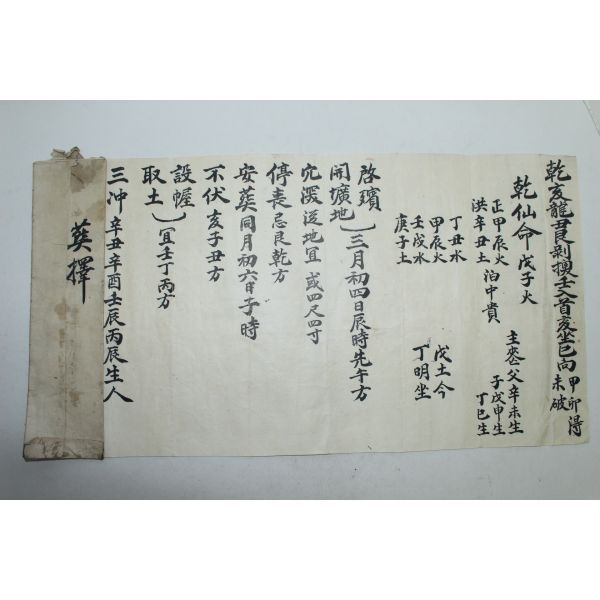 乾亥龍艮剝換壬入首亥坐巳向 甲卯得 未破
乾仙命 戊子火
正甲辰火 泊中貴
洪辛丑土
主喪父辛未生
子戊申生
丁巳生
丁丑水
甲辰火
壬戌水
庚子土
戊土今
丁明坐
啓殯
開壙地 三月初四日辰時先午方
穴深淺地宜 或四尺四寸
停喪忌艮乾方
安葬同月初六日子時
不伏亥子丑方
設幄
取土 宜壬丁丙方
三冲 辛丑辛酉壬辰丙辰生人
葬擇